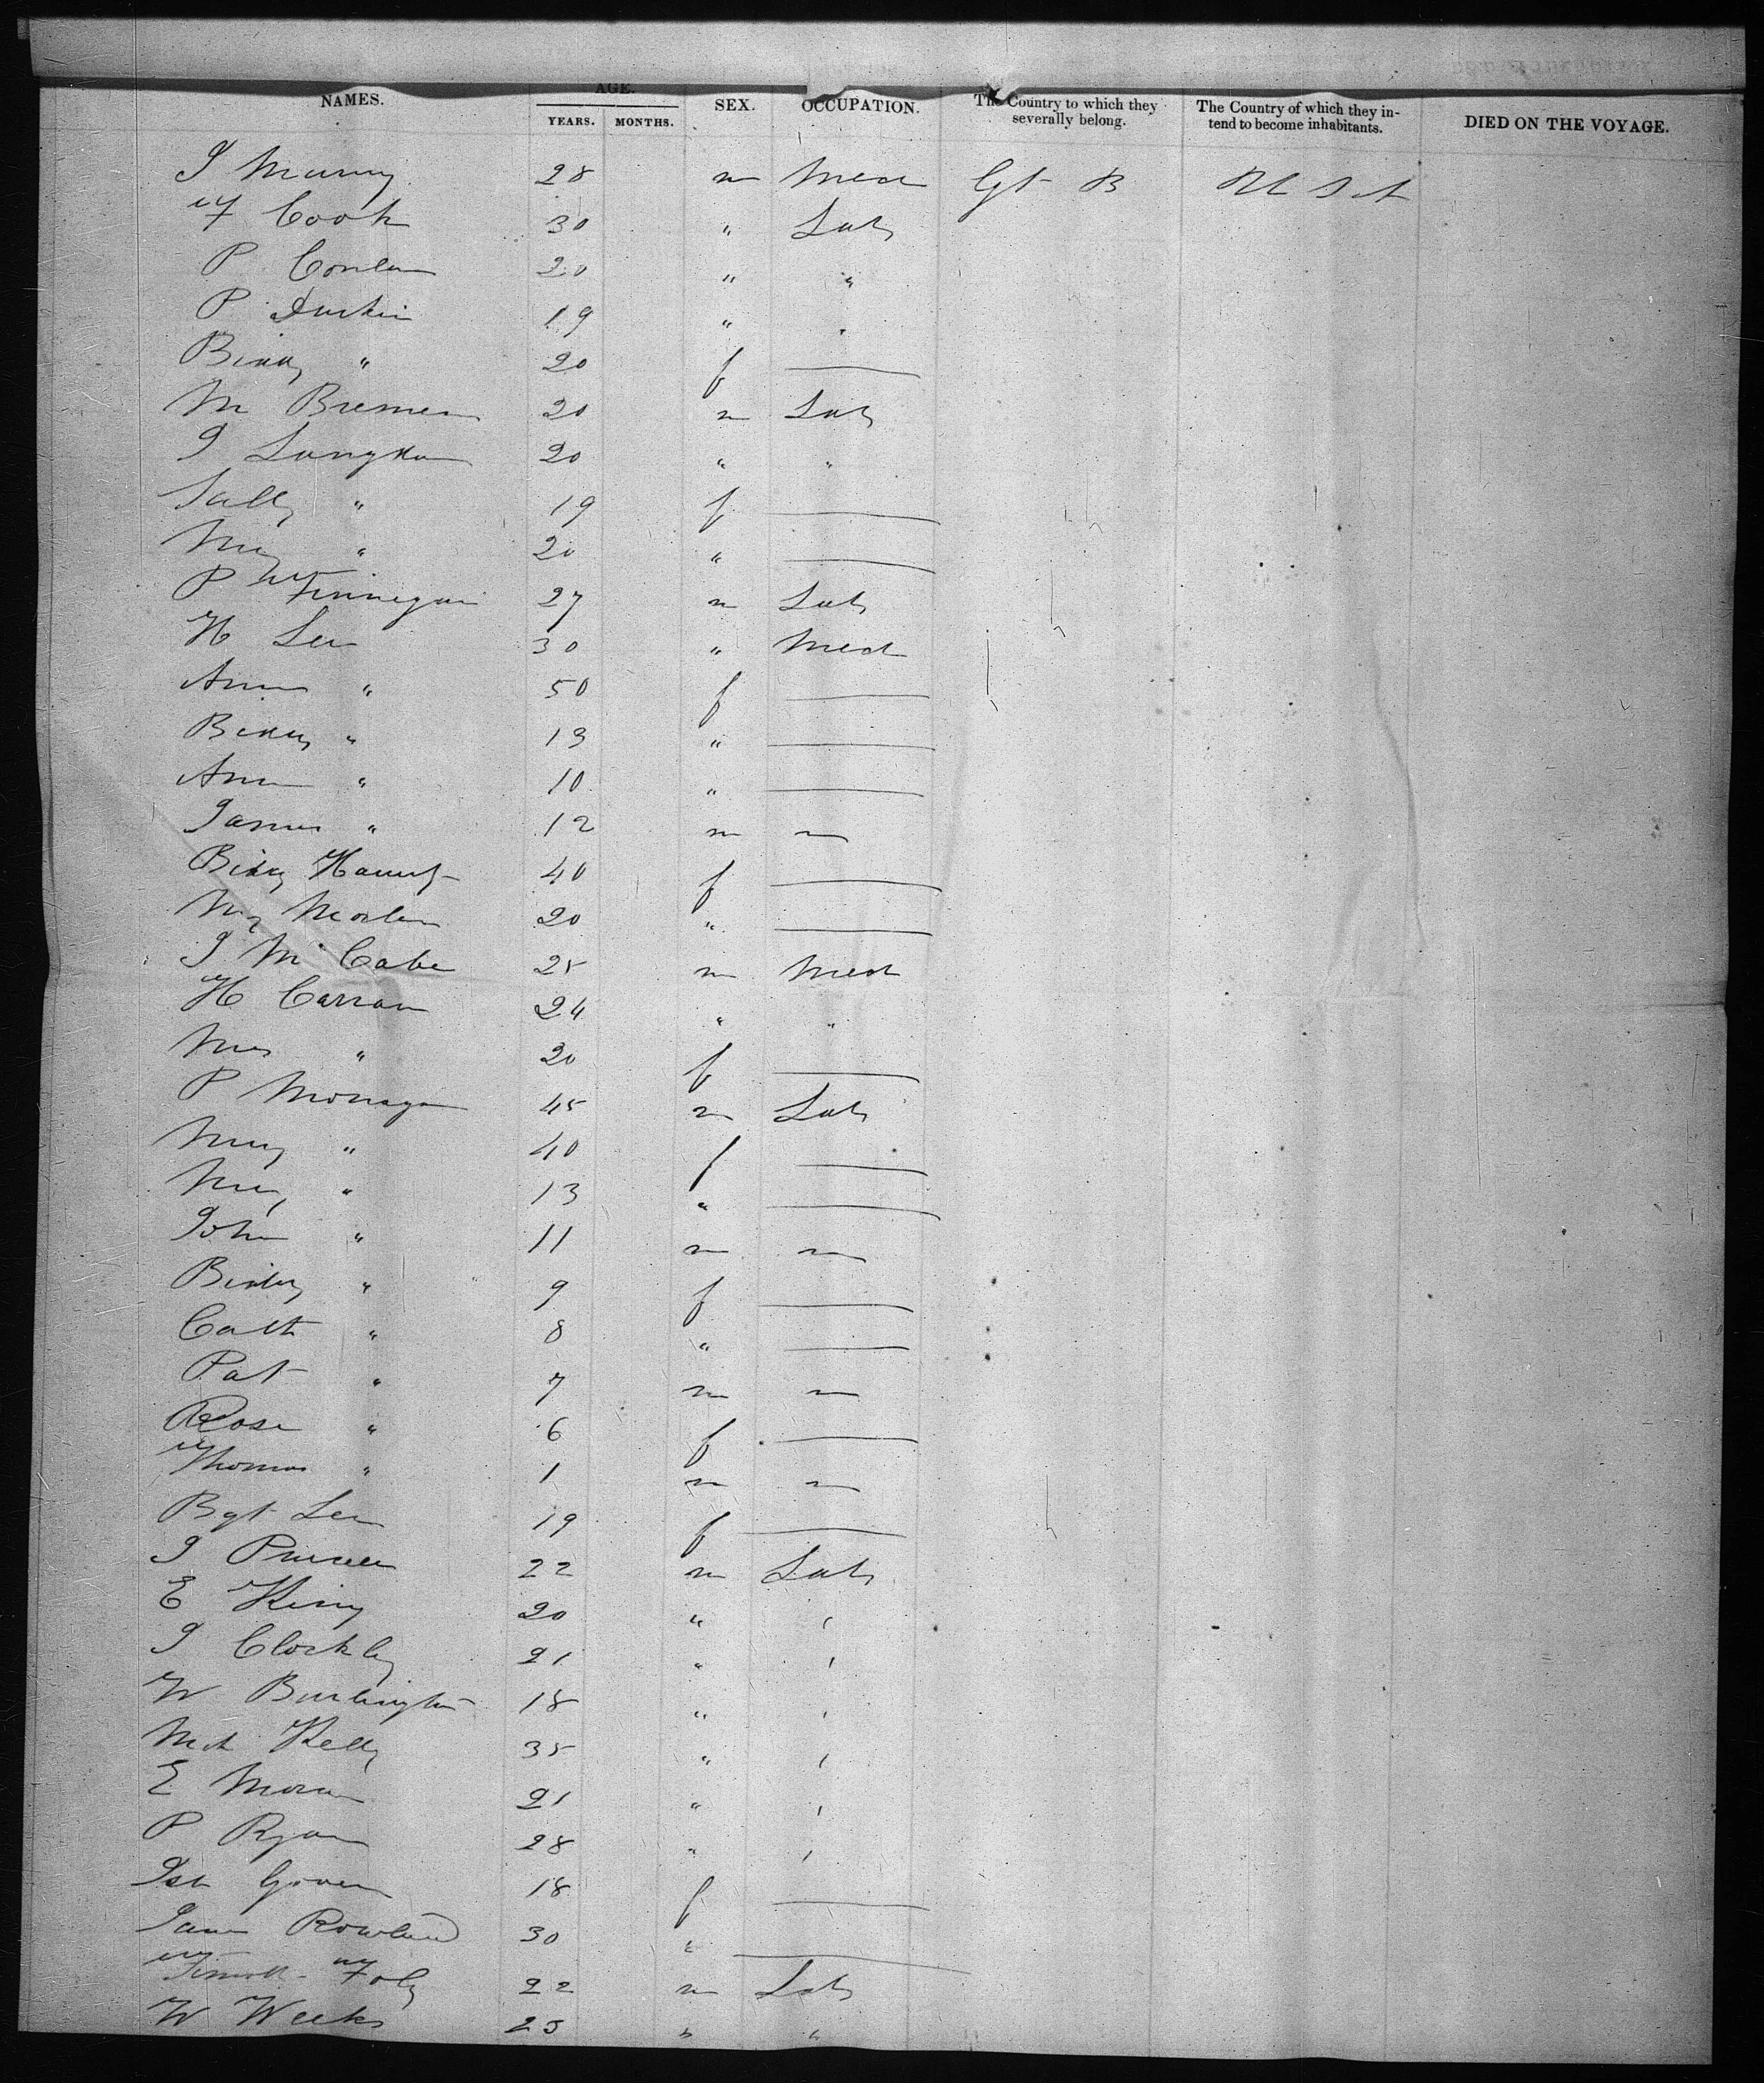 NAMES. AGE. YEARS. MONTHS. SEX. OCCUPATION. The Country to which they severally belong. The Country of which they intend to become inhabitants. DIED ON THE VOYAGE.
J Murray 28 m Mech Gt B
F Cook 30 " Lab
P Conlan 20 " "
P Durkin 19 " "
Biddy " 20 f
M 20 m Lab
J Langdon 20 " "
Sally " 19 f
" 20 "
P Finnegan 27 m Lab
H Lee 30 " Mech
Ann " 50 f
Biddy " 13 "
Ann " 10 "
James " 12 m
Biddy 40 f
20 "
J Mc Cabe 25 m Mech
H Carran 24 " "
" 20 f
P Monagan 45 m Lab
Mary " 40 f
Mary " 13 "
John " 11 m
Biddy " 9 f
Cath " 8 "
Pat " 7 m
Rose " 6 f
Thomas " 1 m
Bgt Lee 19 f
J 22 m Lab
E King 20 "
J 21 "
W Burlington 18 "
Kelly 35 "
E Moran 21 "
P Ryan 28 "
18 f
Rowland 30 "
Foly 22 m Lab
W Weeks 25 " "